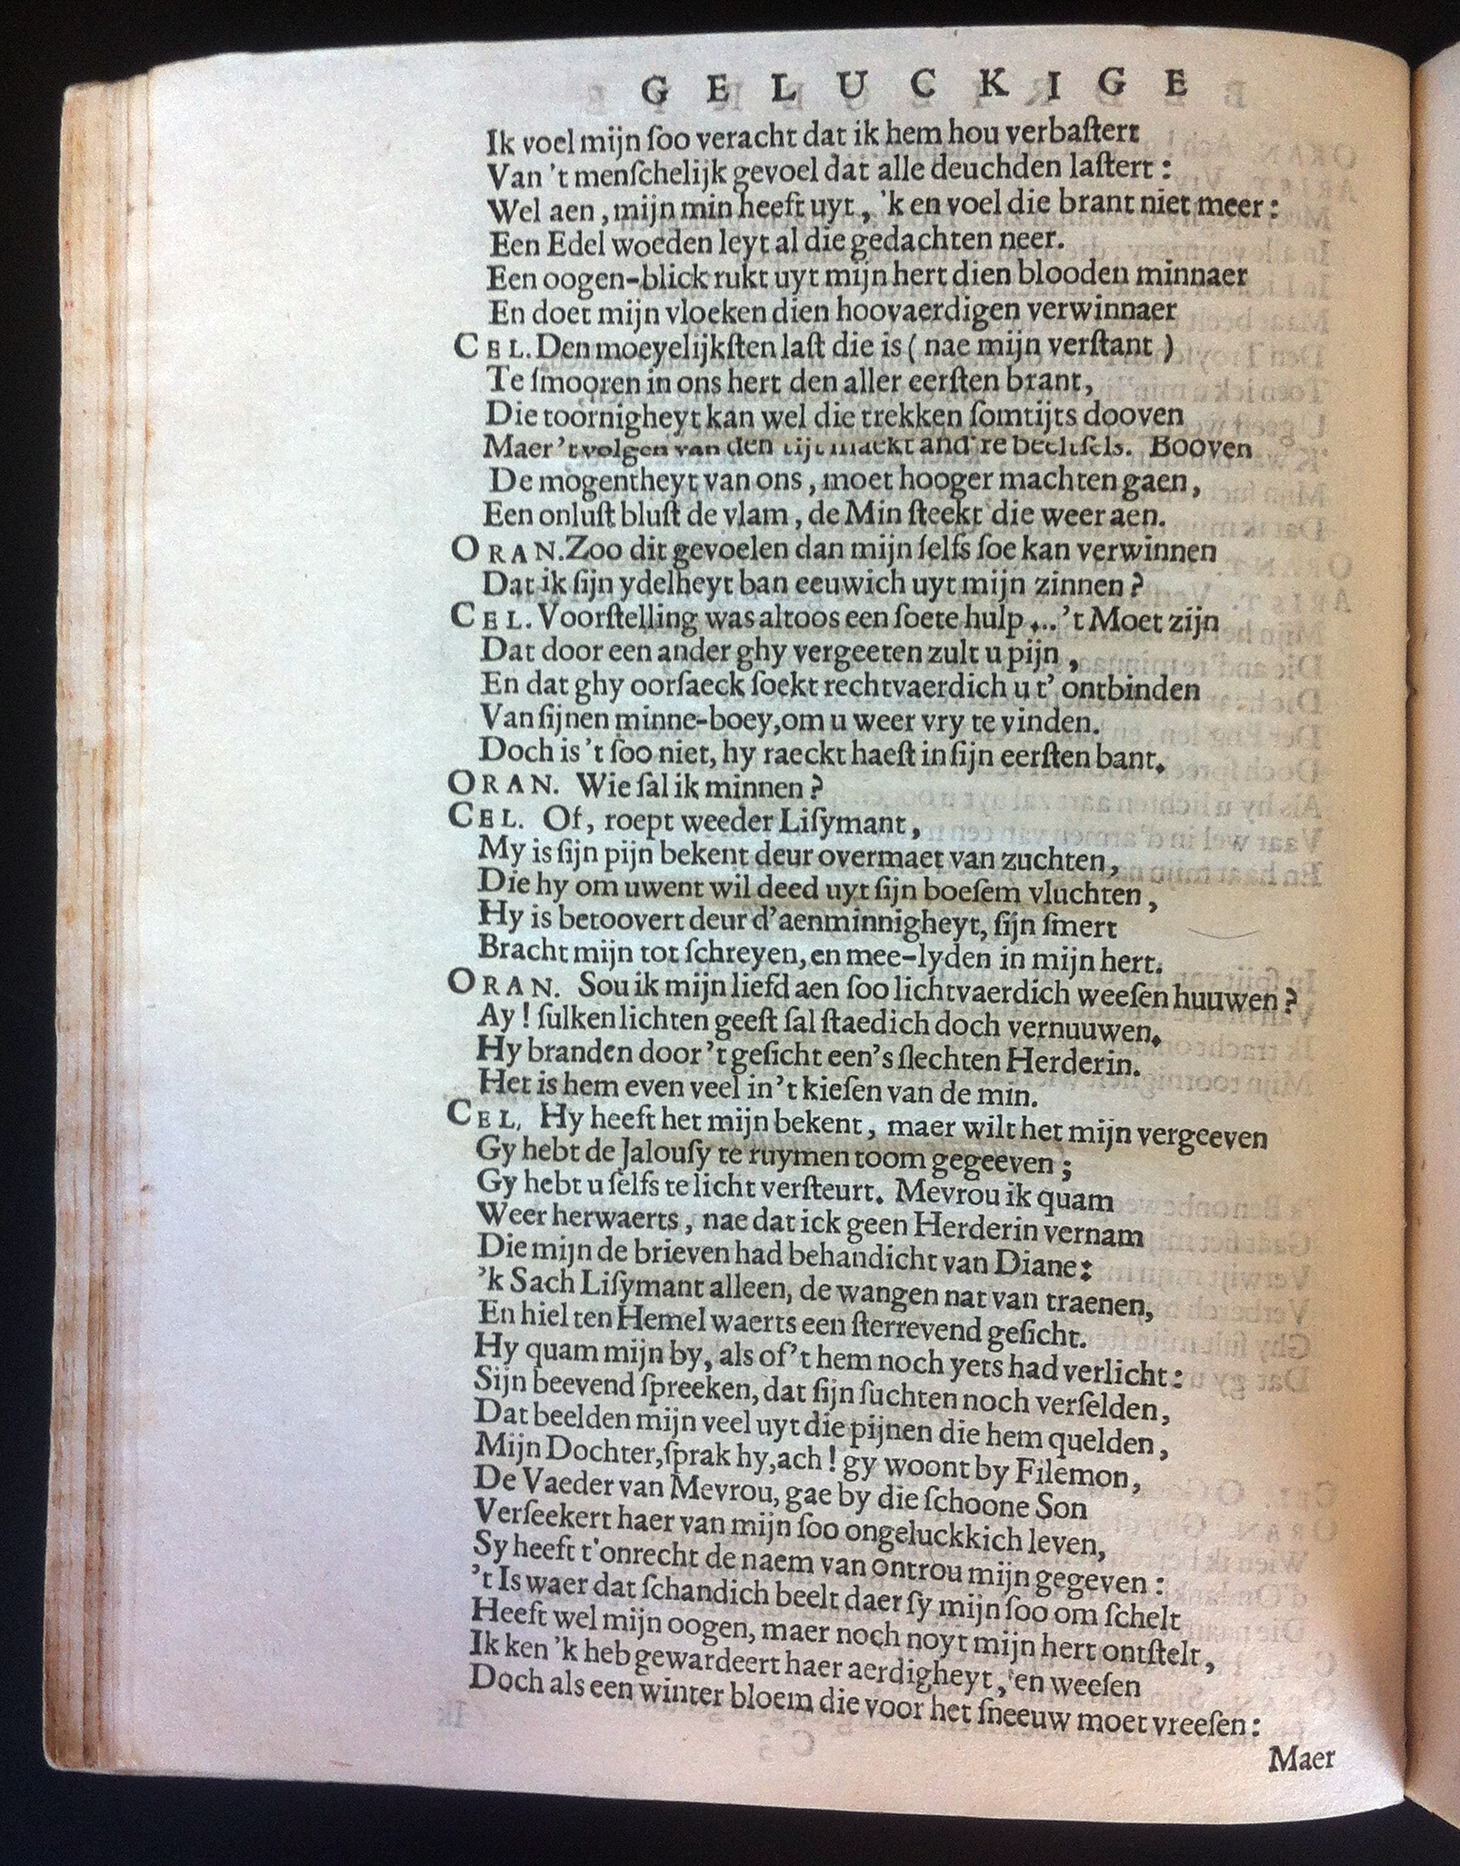 GELUCKIGE
Ik voel mijn ſoo veracht dat ik hem hou verbaſtert
Van 't menſchelijk gevoel dat alle deuchden laſtert:
Wel aen, mijn min heeft uyt, 'k en voel die brant niet meer:
Een Edel woeden leyt al die gedachten neer.
Een oogen-blick rukt uyt mijn hert dien blooden minnaer
En doet mijn vloeken dien hoovaerdigen verwinnaer
CEL. Den moeyelijkſten laſt die is ( nae mijn verſtant )
Te ſmooren in ons hert den aller eerſten brant,
Die toornigheyt kan wel die trekken ſomtijts dooven
Maer 't volgen van den tijt maekt and're beeltſels. Booven
De mogentheyt van ons, moet hooger machten gaen,
Een onluſt bluſt de vlam, de Min ſteekt die weer aen.
ORAN. Zoo dit gevoelen dan mijn ſelfs ſoe kan verwinnen
Dat ik ſijn ydelheyt ban eeuwich uyt mijn zinnen?
CEL. Voorſtelling was altoos een ſoete hulp ... 't Moet zijn
Dat door een ander ghy vergeeten zult u pijn,
En dat ghy oorſaeck ſoekt rechtvaerdich u t' ontbinden
Van ſijnen minne-boey, om u weer vry te vinden.
Doch is 't ſoo niet, hy raeckt haeſt in ſijn eerſten bant.
ORAN. Wie ſal ik minnen?
CEL. Of, roept weeder Liſymant,
My is ſijn pijn bekent deur overmaet van zuchten,
Die hy om uwent wil deed uyt ſijn boeſem vluchten,
Hy is betoovert deur d'aenminnigheyt, ſijn ſmert
Bracht mijn tot ſchreyen, en mee-lyden in mijn hert.
ORAN. Sou ik mijn liefd aen ſoo lichtvaerdich weeſen huuwen?
Ay! ſulken lichten geeſt ſal ſtaedich doch vernuuwen.
Hy branden door 't geſicht een's ſlechten Herderin.
Het is hem even veel in 't kieſen van de min.
CEL, Hy heeft het mijn bekent, maer wilt het mijn vergeeven
Gy hebt de Jalouſy te ruymen toom gegeeven;
Gy hebt u ſelfs te licht verſteurt. Mevrou ik quam
Weer herwaerts, nae dat ick geen Herderin vernam
Die mijn de brieven had behandicht van Diane:
'k Sach Liſymant alleen, de wangen nat van traenen,
En hiel ten Hemel waerts een ſterrevend geſicht.
Hy quam mijn by, als of 't hem noch yets had verlicht:
Sijn beevend ſpreeken, dat ſijn ſuchten noch verſelden,
Dat beelden mijn veel uyt die pijnen die hem quelden,
Mijn Dochter, ſprak hy, ach! gy woont by Filemon,
De Vaeder van Mevrou, gae by die ſchoone Son
Verſeekert haer van mijn ſoo ongeluckkich leven,
Sy heeft t'onrecht de naem van ontrou mijn gegeven:
't Is waer dat ſchandich beelt daer ſy mijn ſoo om ſchelt
Heeft wel mijn oogen, maer noch noyt mijn hert ontſtelt,
Ik ken 'k heb gewardeert haer aerdigheyt, 'en weeſen
Doch als een winter bloem die voor het ſneeuw moet vreeſen:
Maer